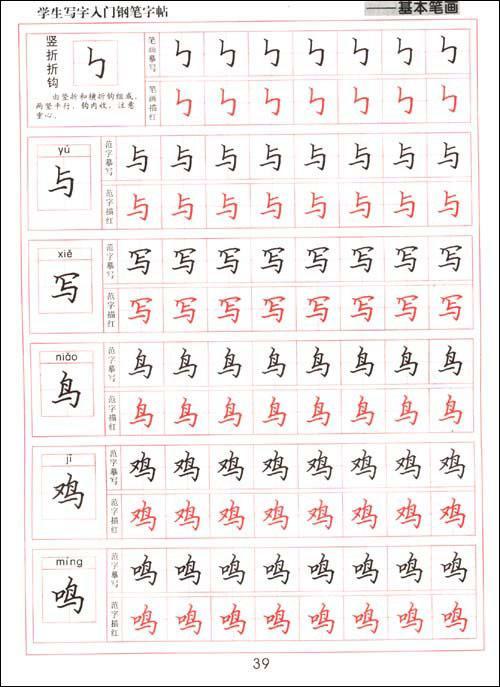 学生写字入门钢笔字帖
——基本笔画
竖折折钩
㇉
由竖折和横折钩组成，
两竖平行，钩内收，注意
重心。
笔画摹写 ㇉ ㇉ ㇉ ㇉ ㇉ ㇉ ㇉
笔画描红 ㇉ ㇉ ㇉ ㇉ ㇉ ㇉ ㇉
yǔ
与
范字摹写 与 与 与 与 与 与 与 与
范字描红 与 与 与 与 与 与 与 与
xiě
写
范字摹写 写 写 写 写 写 写 写 写
范字描红 写 写 写 写 写 写 写 写
niǎo
鸟
范字摹写 鸟 鸟 鸟 鸟 鸟 鸟 鸟 鸟
范字描红 鸟 鸟 鸟 鸟 鸟 鸟 鸟 鸟
jī
鸡
范字摹写 鸡 鸡 鸡 鸡 鸡 鸡 鸡 鸡
范字描红 鸡 鸡 鸡 鸡 鸡 鸡 鸡 鸡
míng
鸣
范字摹写 鸣 鸣 鸣 鸣 鸣 鸣 鸣 鸣
范字描红 鸣 鸣 鸣 鸣 鸣 鸣 鸣 鸣
39